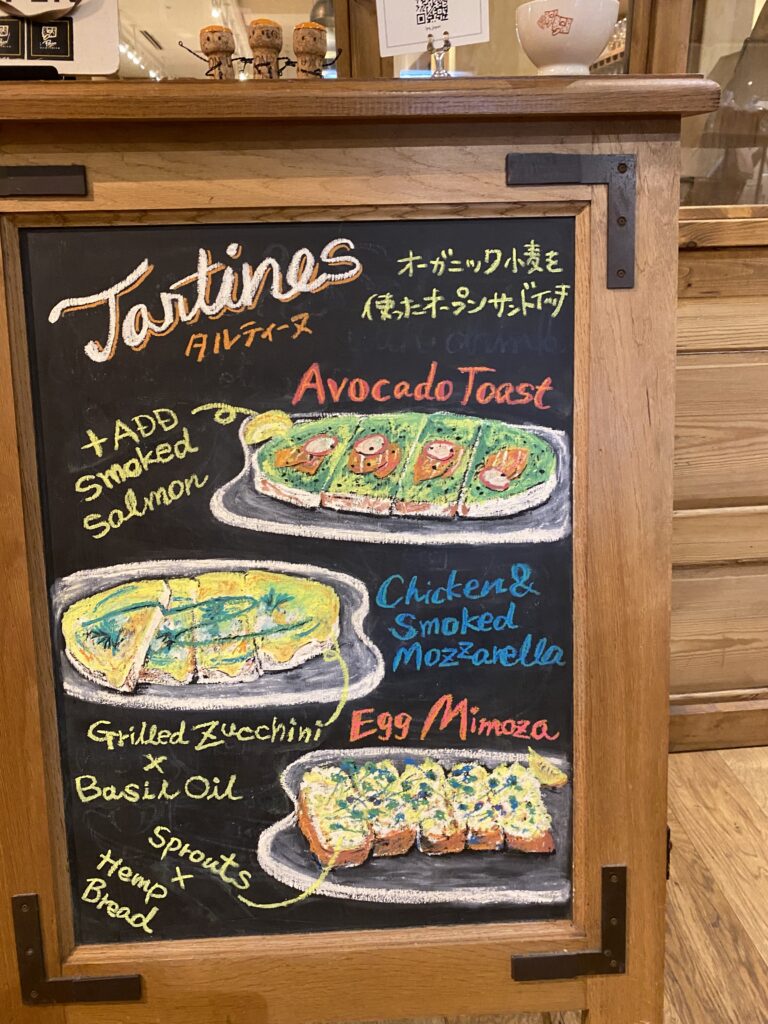 Tartines
タルティーヌ
オーガニック小麦を
使ったオープンサンドイッチ
Avocado Toast
+ADD
Smoked
Salmon
Chicken &
Smoked
Mozzarella
Grilled Zucchini
×
Basil Oil
Egg Mimoza
Sprouts
×
Hemp
Bread